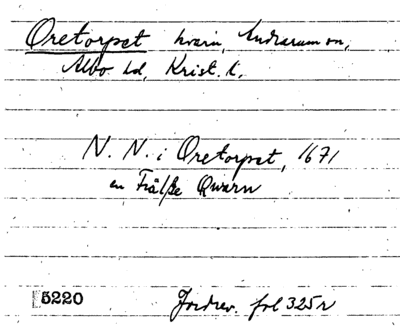 Oretorpet kvarn, Andrarum sn,
Albo hd, Krist. l.
N. N. i Oretorpet, 1671
en Fiälße Qwarn
5220
Jordrev. fol 325 r